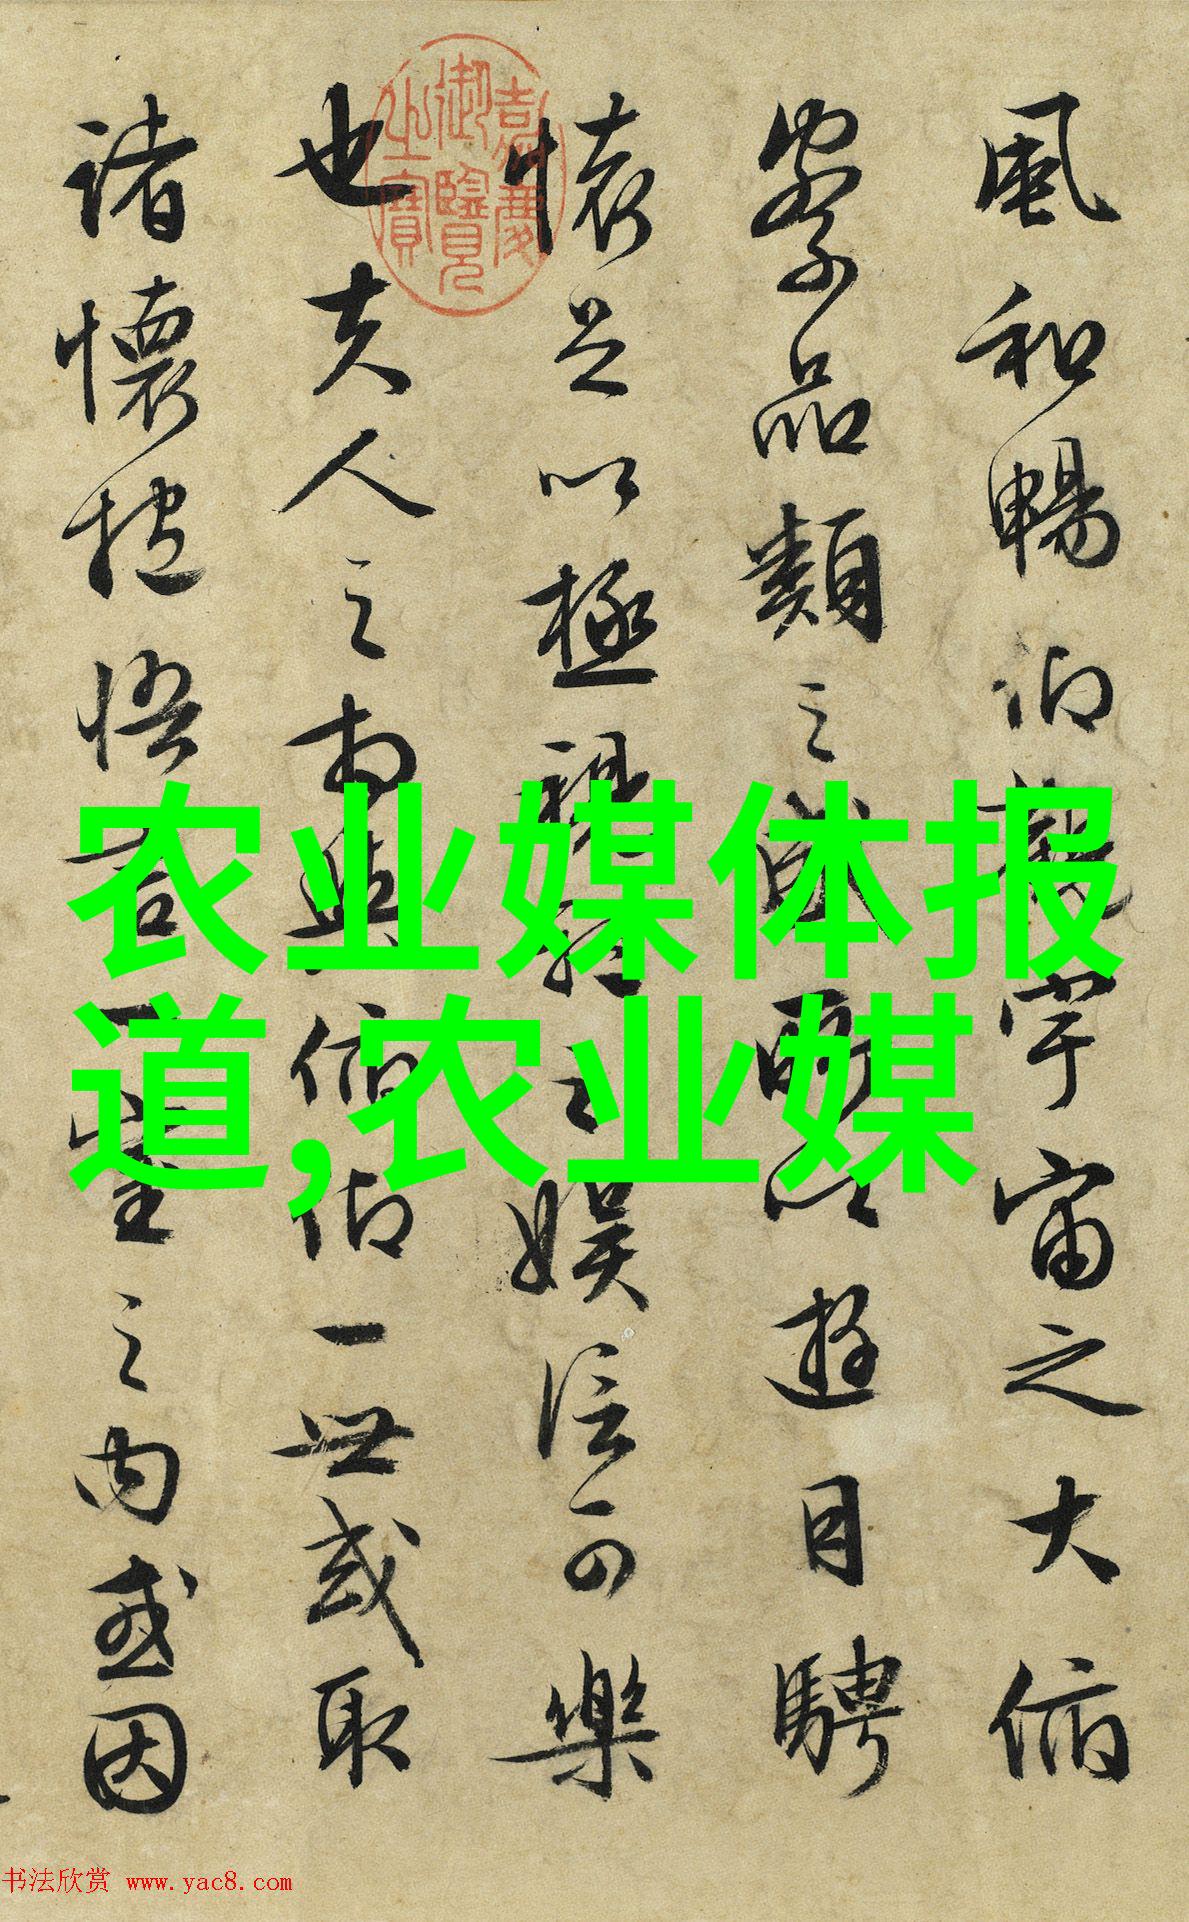 風和暢仰觀宇宙之大俯
察品類之盛所以遊目騁
懷足以極視聽之娛信可樂
也夫人之相與俯仰一世或取
諸懷抱悟言一室之内或因
嘉慶御覽之寶
农业媒体报
道,农业媒
书法欣赏 www.yac8.com